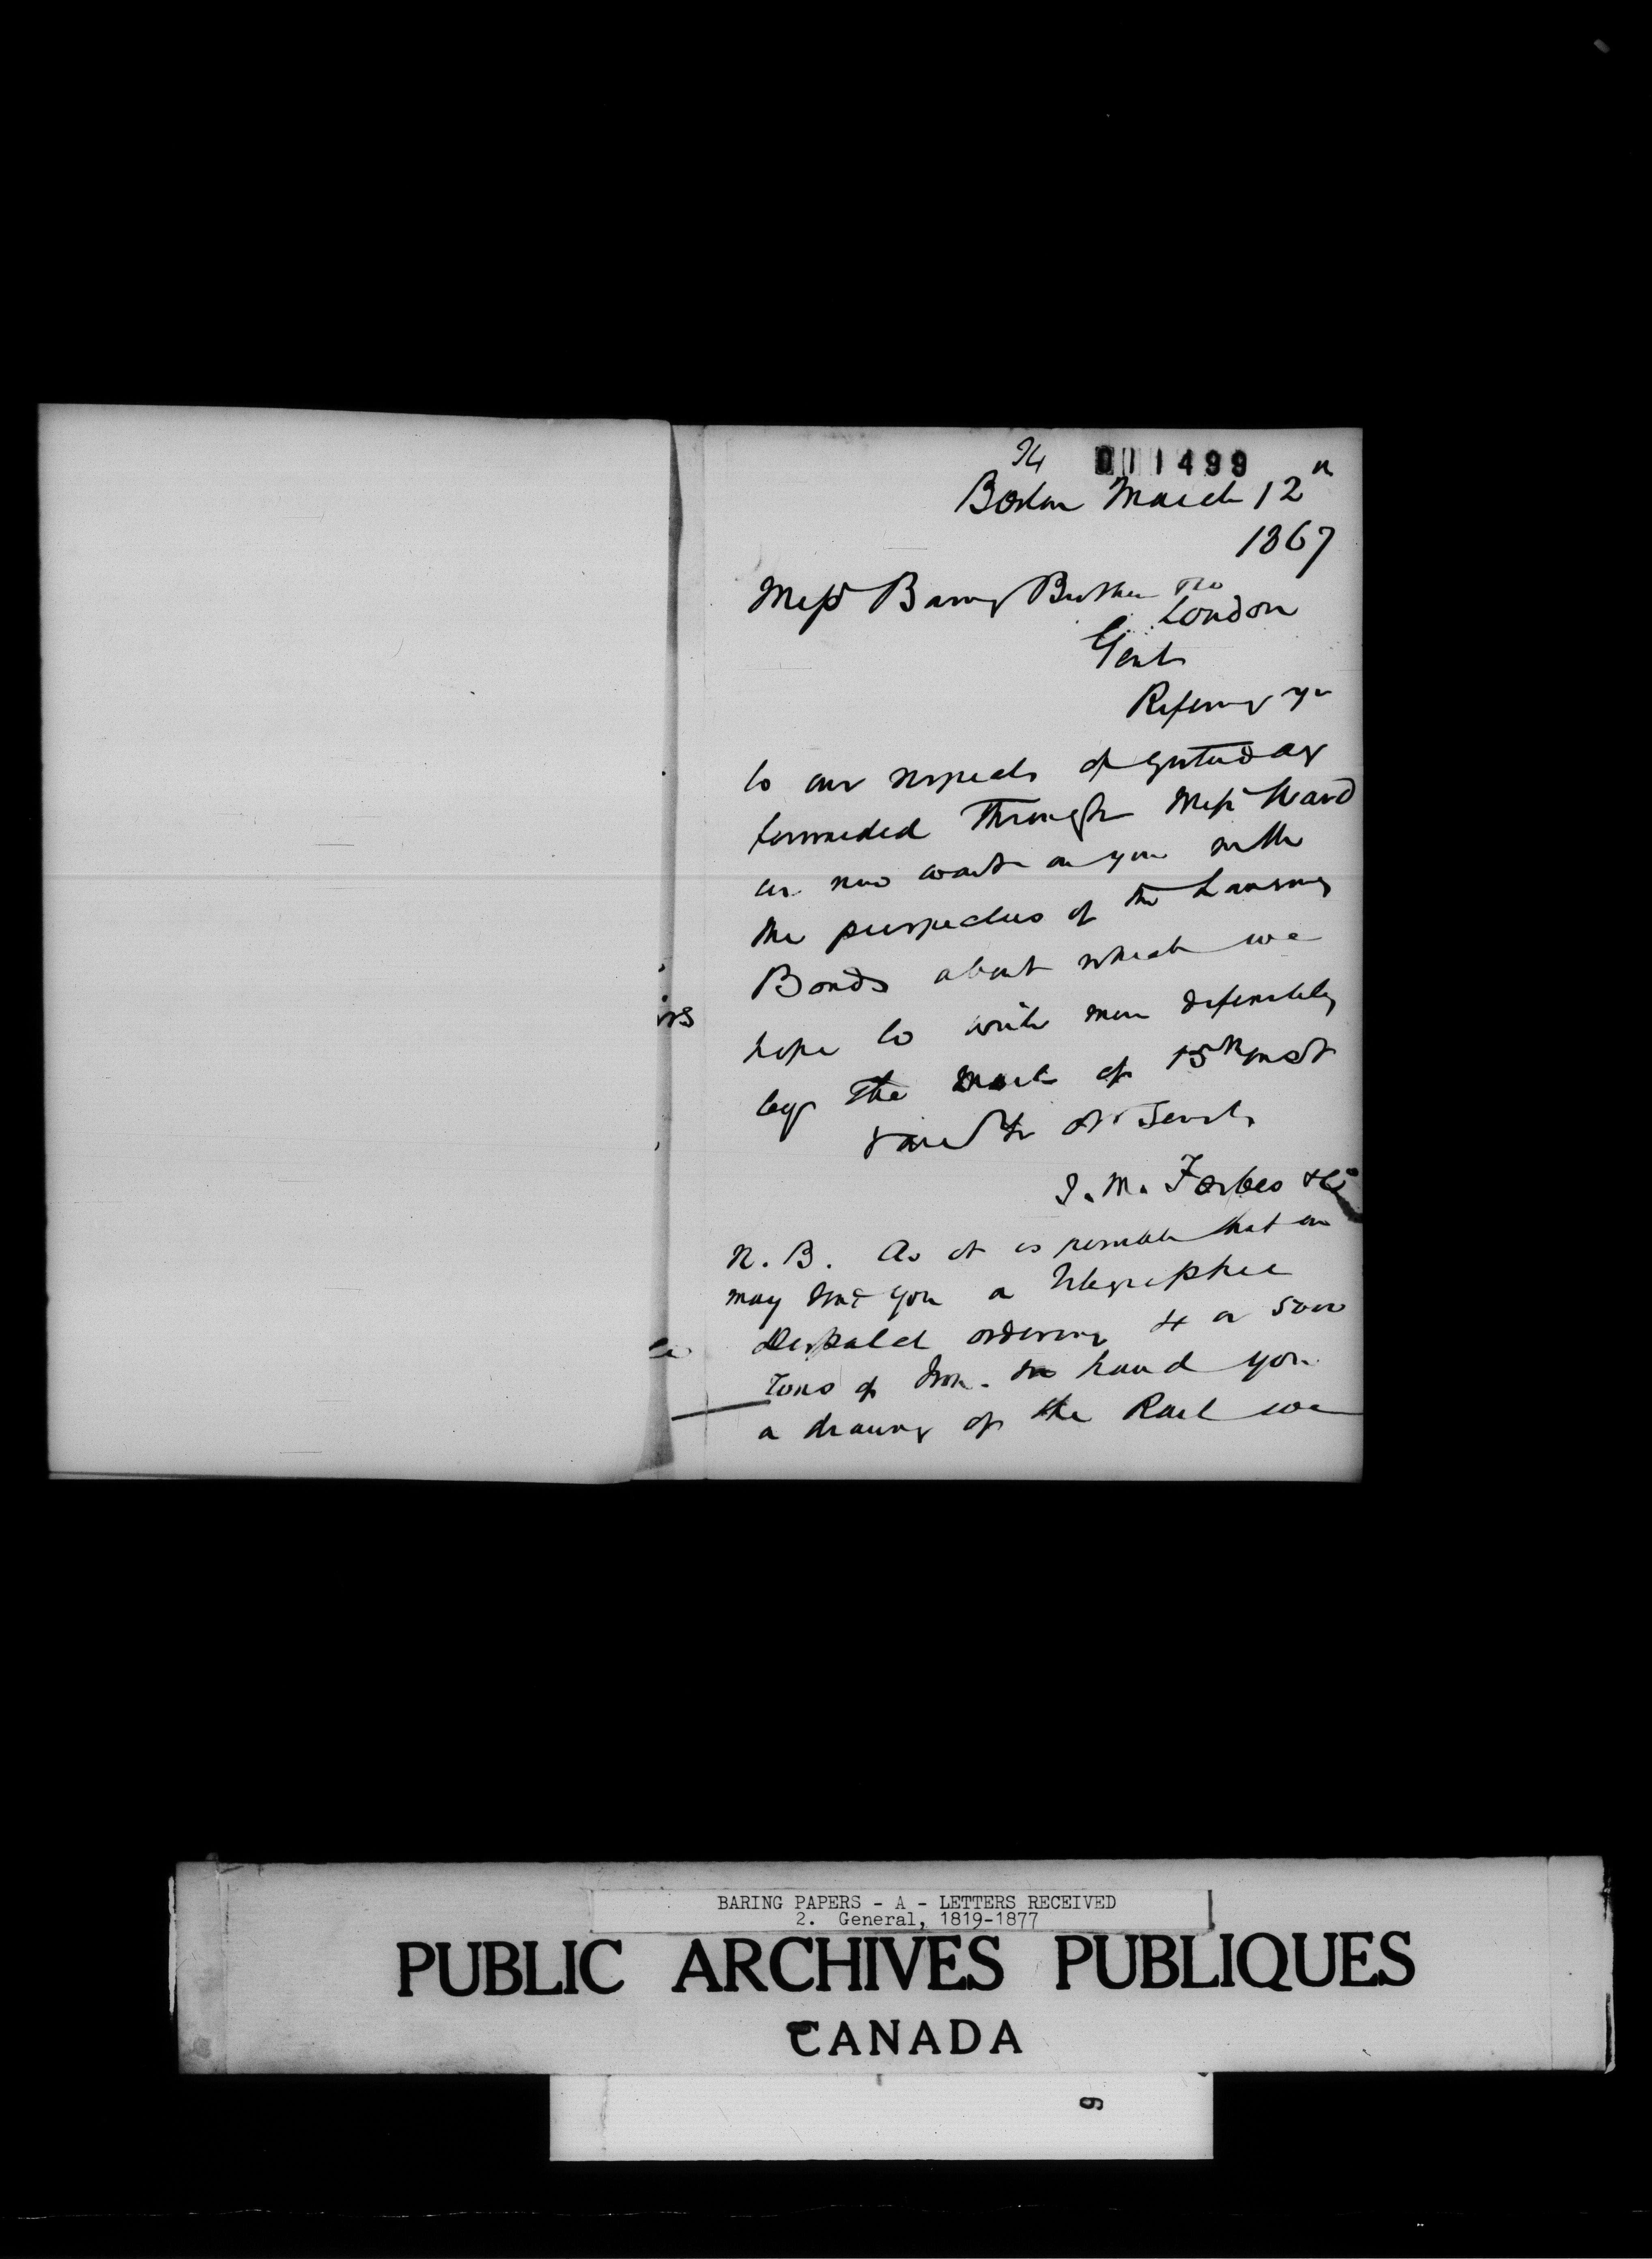 24 011499
Boston March 12th
1867
Messrs Baring Brothers & Co
London
Gents
Referring you
to our respects of yesterday
forwarded through Messrs Ward
we now wait on you with
the prospectus of the Lansing
Bonds about which we
hope to write more definitely
by the mail of 15th inst
Your Obt Servts
J. M. Forbes & Co
N.B. As it is possible that we
may send you a Telegraphic
despatch ordering 4 or 5000
Tons of Iron. we hand you
a drawing of the Rail we
BARING PAPERS - A - LETTERS RECEIVED
2. General, 1819-1877
PUBLIC ARCHIVES PUBLIQUES
CANADA
9